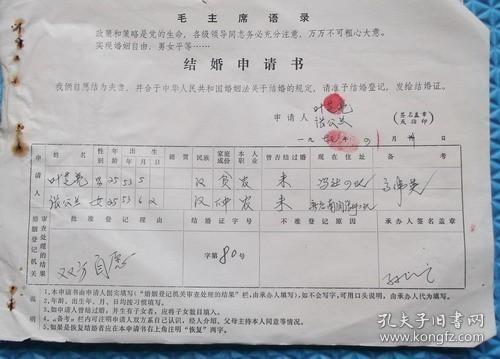 毛主席语录
政策和策略是党的生命，各级领导同志务必充分注意，万万不可粗心大意。
实现婚姻自由，男女平等……
结婚申请书
我俩自愿结为夫妻，并合于中华人民共和国婚姻法关于结婚的规定，请准予结婚登记，发给结婚证。
申请人 (签名盖章或捺印)
一九 年 月 日
申请人 姓名 性别 年龄 出生年月日 籍贯 民族 家庭成份 本人职业 曾否结过婚 现在住址 备考
男 25 53 5 汉 贫 农 未
女 25 53 6 汉 中 农 未
婚姻登记机关审查处理的结果 批准登记理由 结婚证字号 不准登记原因 承办人签名盖章
双方自愿 字第80号
说明
1.本申请书由申请人据实填写(“婚姻登记机关审查处理的结果”栏，由承办人填写)，如不会写字，可用口头说明，由承办人代为填写。
2.年龄、出生年、月、日均按习惯填写。
3.如申请人曾结过婚，并生有子女者，应将子女数目填入。
4.“备考”栏内可注明申请人双方系自己认识、经人介绍、父母主持本人同意等情况。
5.如果是恢复结婚者应在本申请书右上角注明“恢复”两字。
孔夫子旧书网